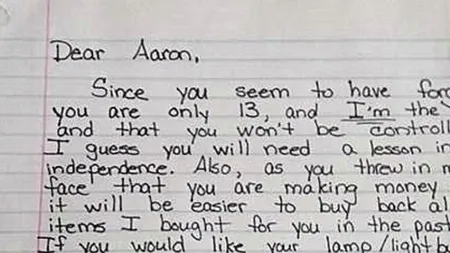 Dear Aaron,
Since you seem to have
you are only 13, and I'm the
and that you won't be
I guess you will need a lesson in
independence. Also, as you threw in
face that you are making money
it will be easier to buy back
items I bought for you in the past
If you would like your lamp/